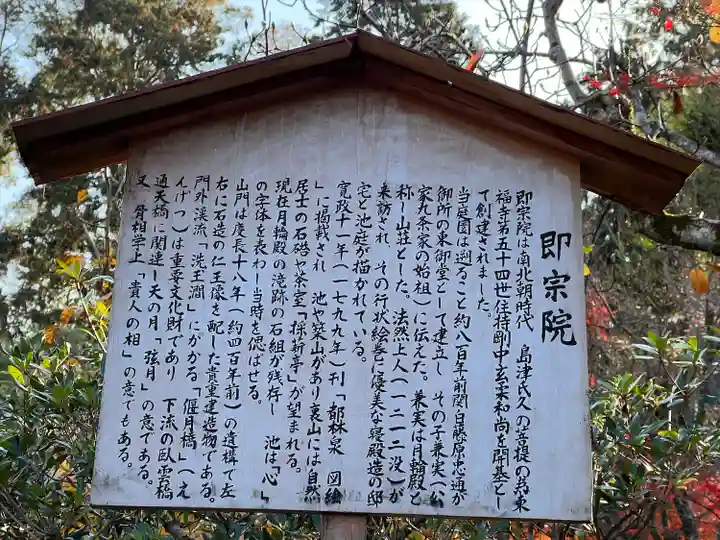 即宗院
即宗院は南北朝時代　島津氏久の菩提の為東
福寺第五十四世住持剛中玄柔和尚を開基とし
て創建されました。
当庭園は遡ること約八百年前関白藤原忠通が
御所の東御堂として建立し　その子兼実（公
家九条家の始祖）に伝えた。兼実は月輪殿と
称し山荘とした。法然上人（一二一二没）が
来訪され　その行状絵巻に優美な寝殿造の邸
宅と池庭が描かれている。
寛政十一年（一七九九年）刊「都林泉　図絵
」に掲載され　池や築山があり裏山には自然
居士の石碞や茶室「採薪亭」が望まれる。
現在月輪殿の滝跡の石組が残存し　池は「心」
の字体を表わし当時を偲ばせる。
山門は慶長十八年（約四百年前）の遺構で左
右に石造の仁王像を配した貴重建造物である。
門外渓流「洗玉澗」にかかる「偃月橋」（え
んげつ）は重要文化財であり　下流の臥雲橋
通天橋に関連し天の月「弦月」の意である。
又　骨相学上「貴人の相」の意でもある。